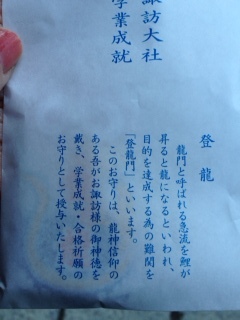 諏訪大社
学業成就
登龍
龍門と呼ばれる急流を鯉が
昇ると龍になるといわれ、
目的を達成する為の難関を
「登龍門」といいます。
このお守りは、龍神信仰の
ある吾がお諏訪様の御神徳を
戴き、学業成就・合格祈願の
お守りとして授与いたします。